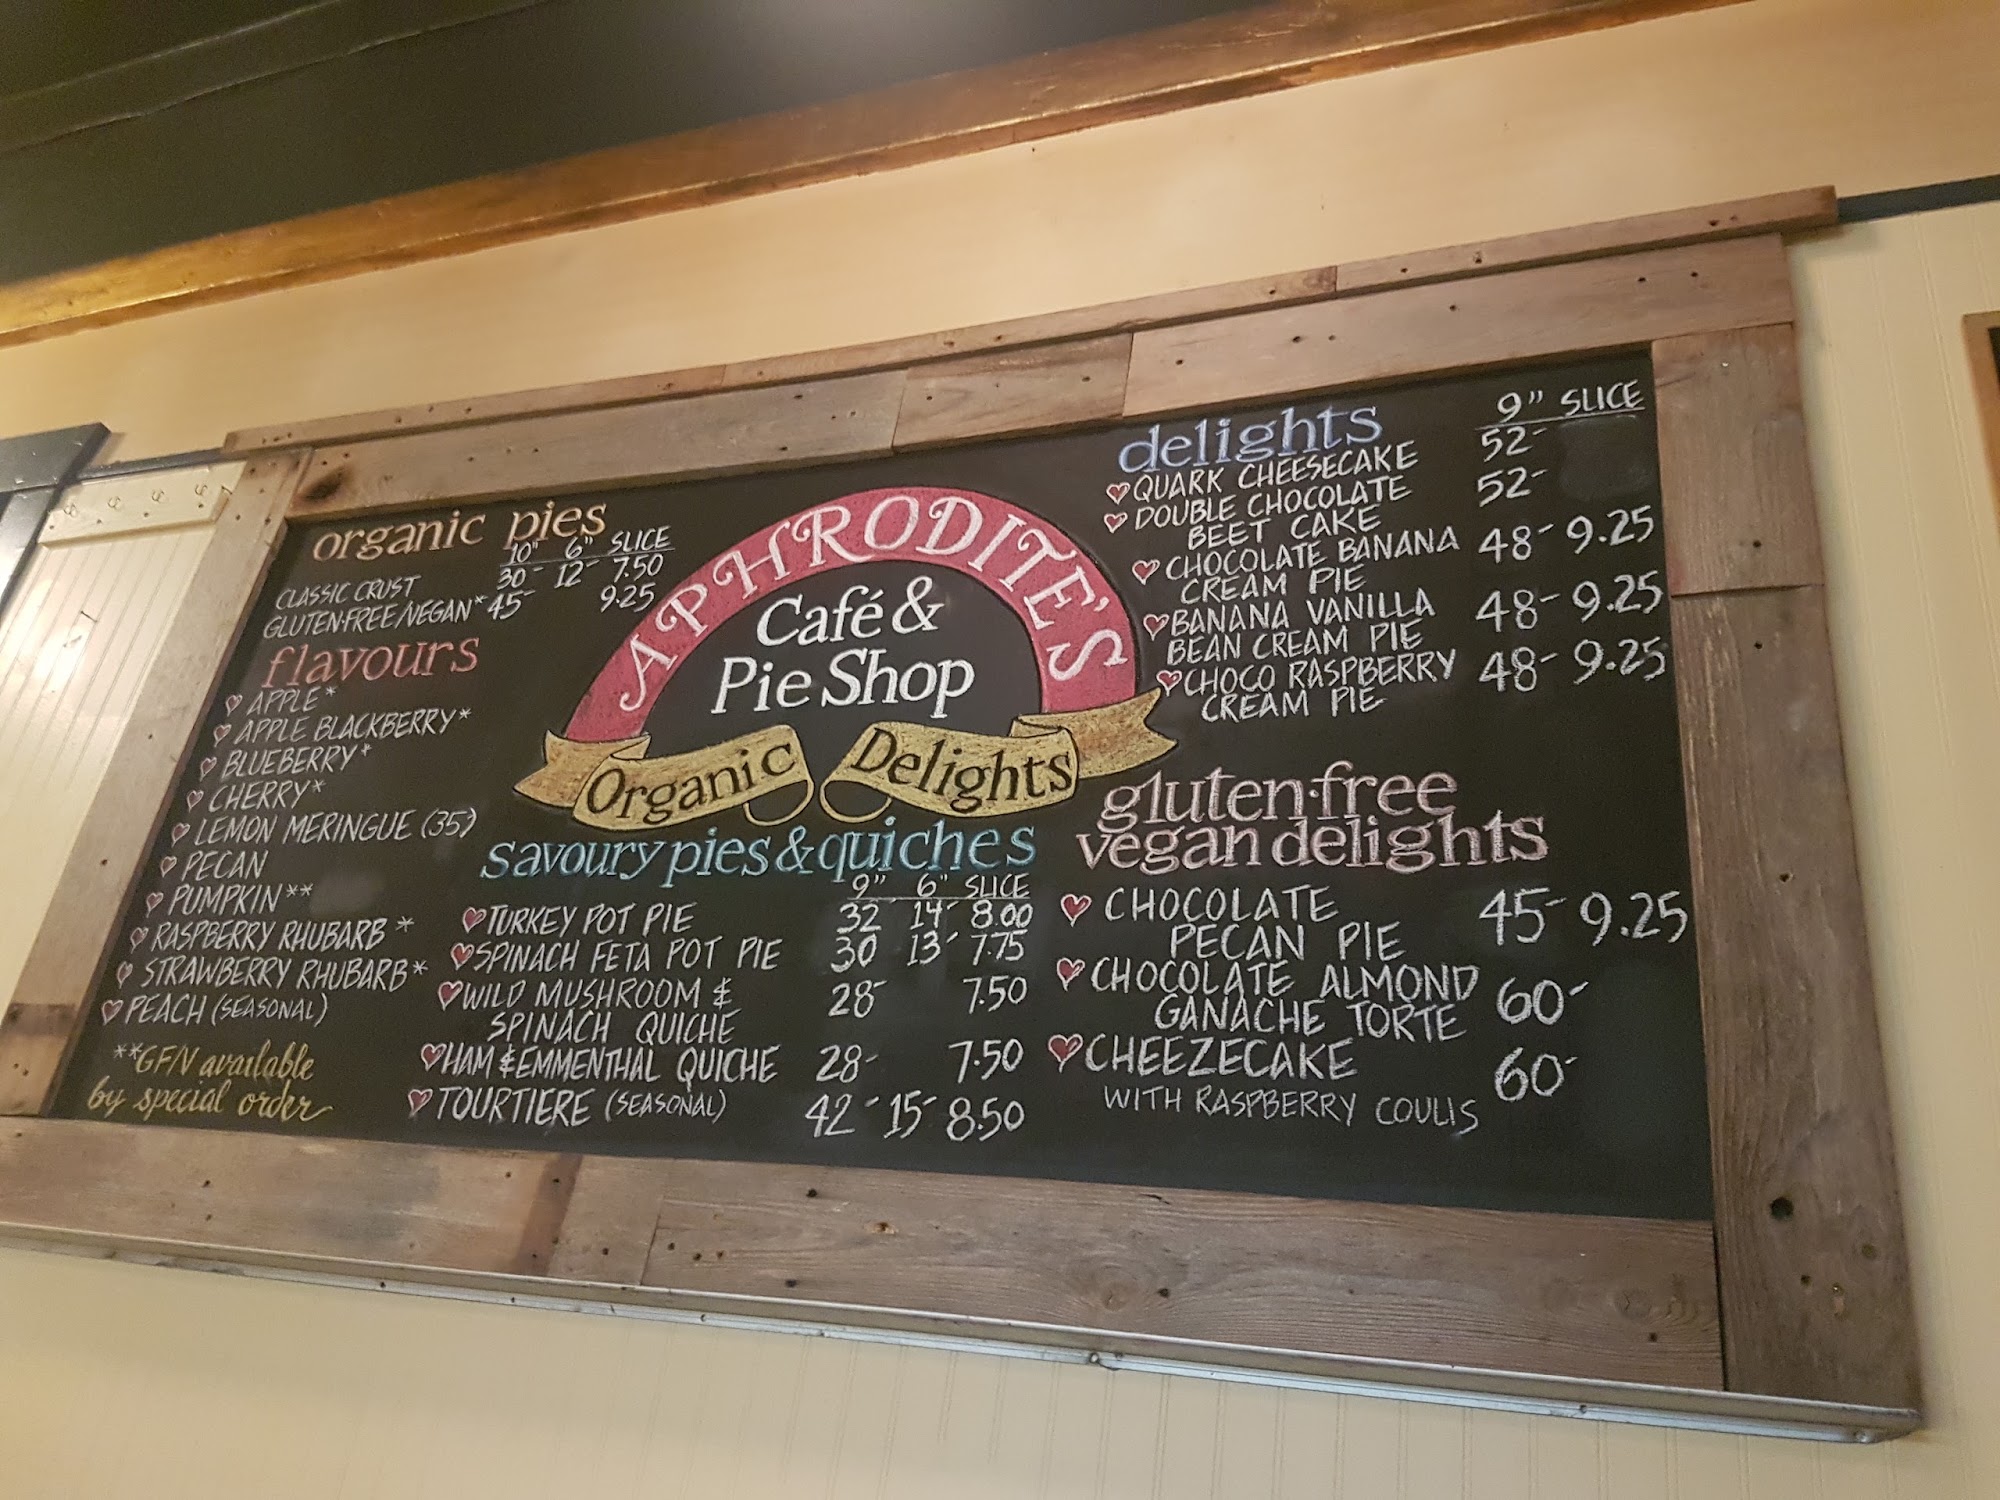 organic pies
10" 6" SLICE
CLASSIC CRUST 30- 12- 7.50
GLUTEN-FREE/VEGAN* 45- 9.25
flavours
APPLE*
APPLE BLACKBERRY*
BLUEBERRY*
CHERRY*
LEMON MERINGUE (35-)
PECAN
PUMPKIN**
RASPBERRY RHUBARB*
STRAWBERRY RHUBARB*
PEACH (SEASONAL)
**GF/V available
by special order
APHRODITE'S
Café &
Pie Shop
Organic Delights
savoury pies & quiches
9" 6" SLICE
TURKEY POT PIE 32 14- 8.00
SPINACH FETA POT PIE 30 13- 7.75
WILD MUSHROOM &
SPINACH QUICHE 28- 7.50
HAM & EMMENTHAL QUICHE 28- 7.50
TOURTIERE (SEASONAL) 42- 15- 8.50
delights
9" SLICE
QUARK CHEESECAKE 52-
DOUBLE CHOCOLATE 52-
BEET CAKE
CHOCOLATE BANANA 48- 9.25
CREAM PIE
BANANA VANILLA 48- 9.25
BEAN CREAM PIE
CHOCO RASPBERRY 48- 9.25
CREAM PIE
gluten-free
vegan delights
CHOCOLATE 45- 9.25
PECAN PIE
CHOCOLATE ALMOND 60-
GANACHE TORTE
CHEEZECAKE 60-
WITH RASPBERRY COULIS